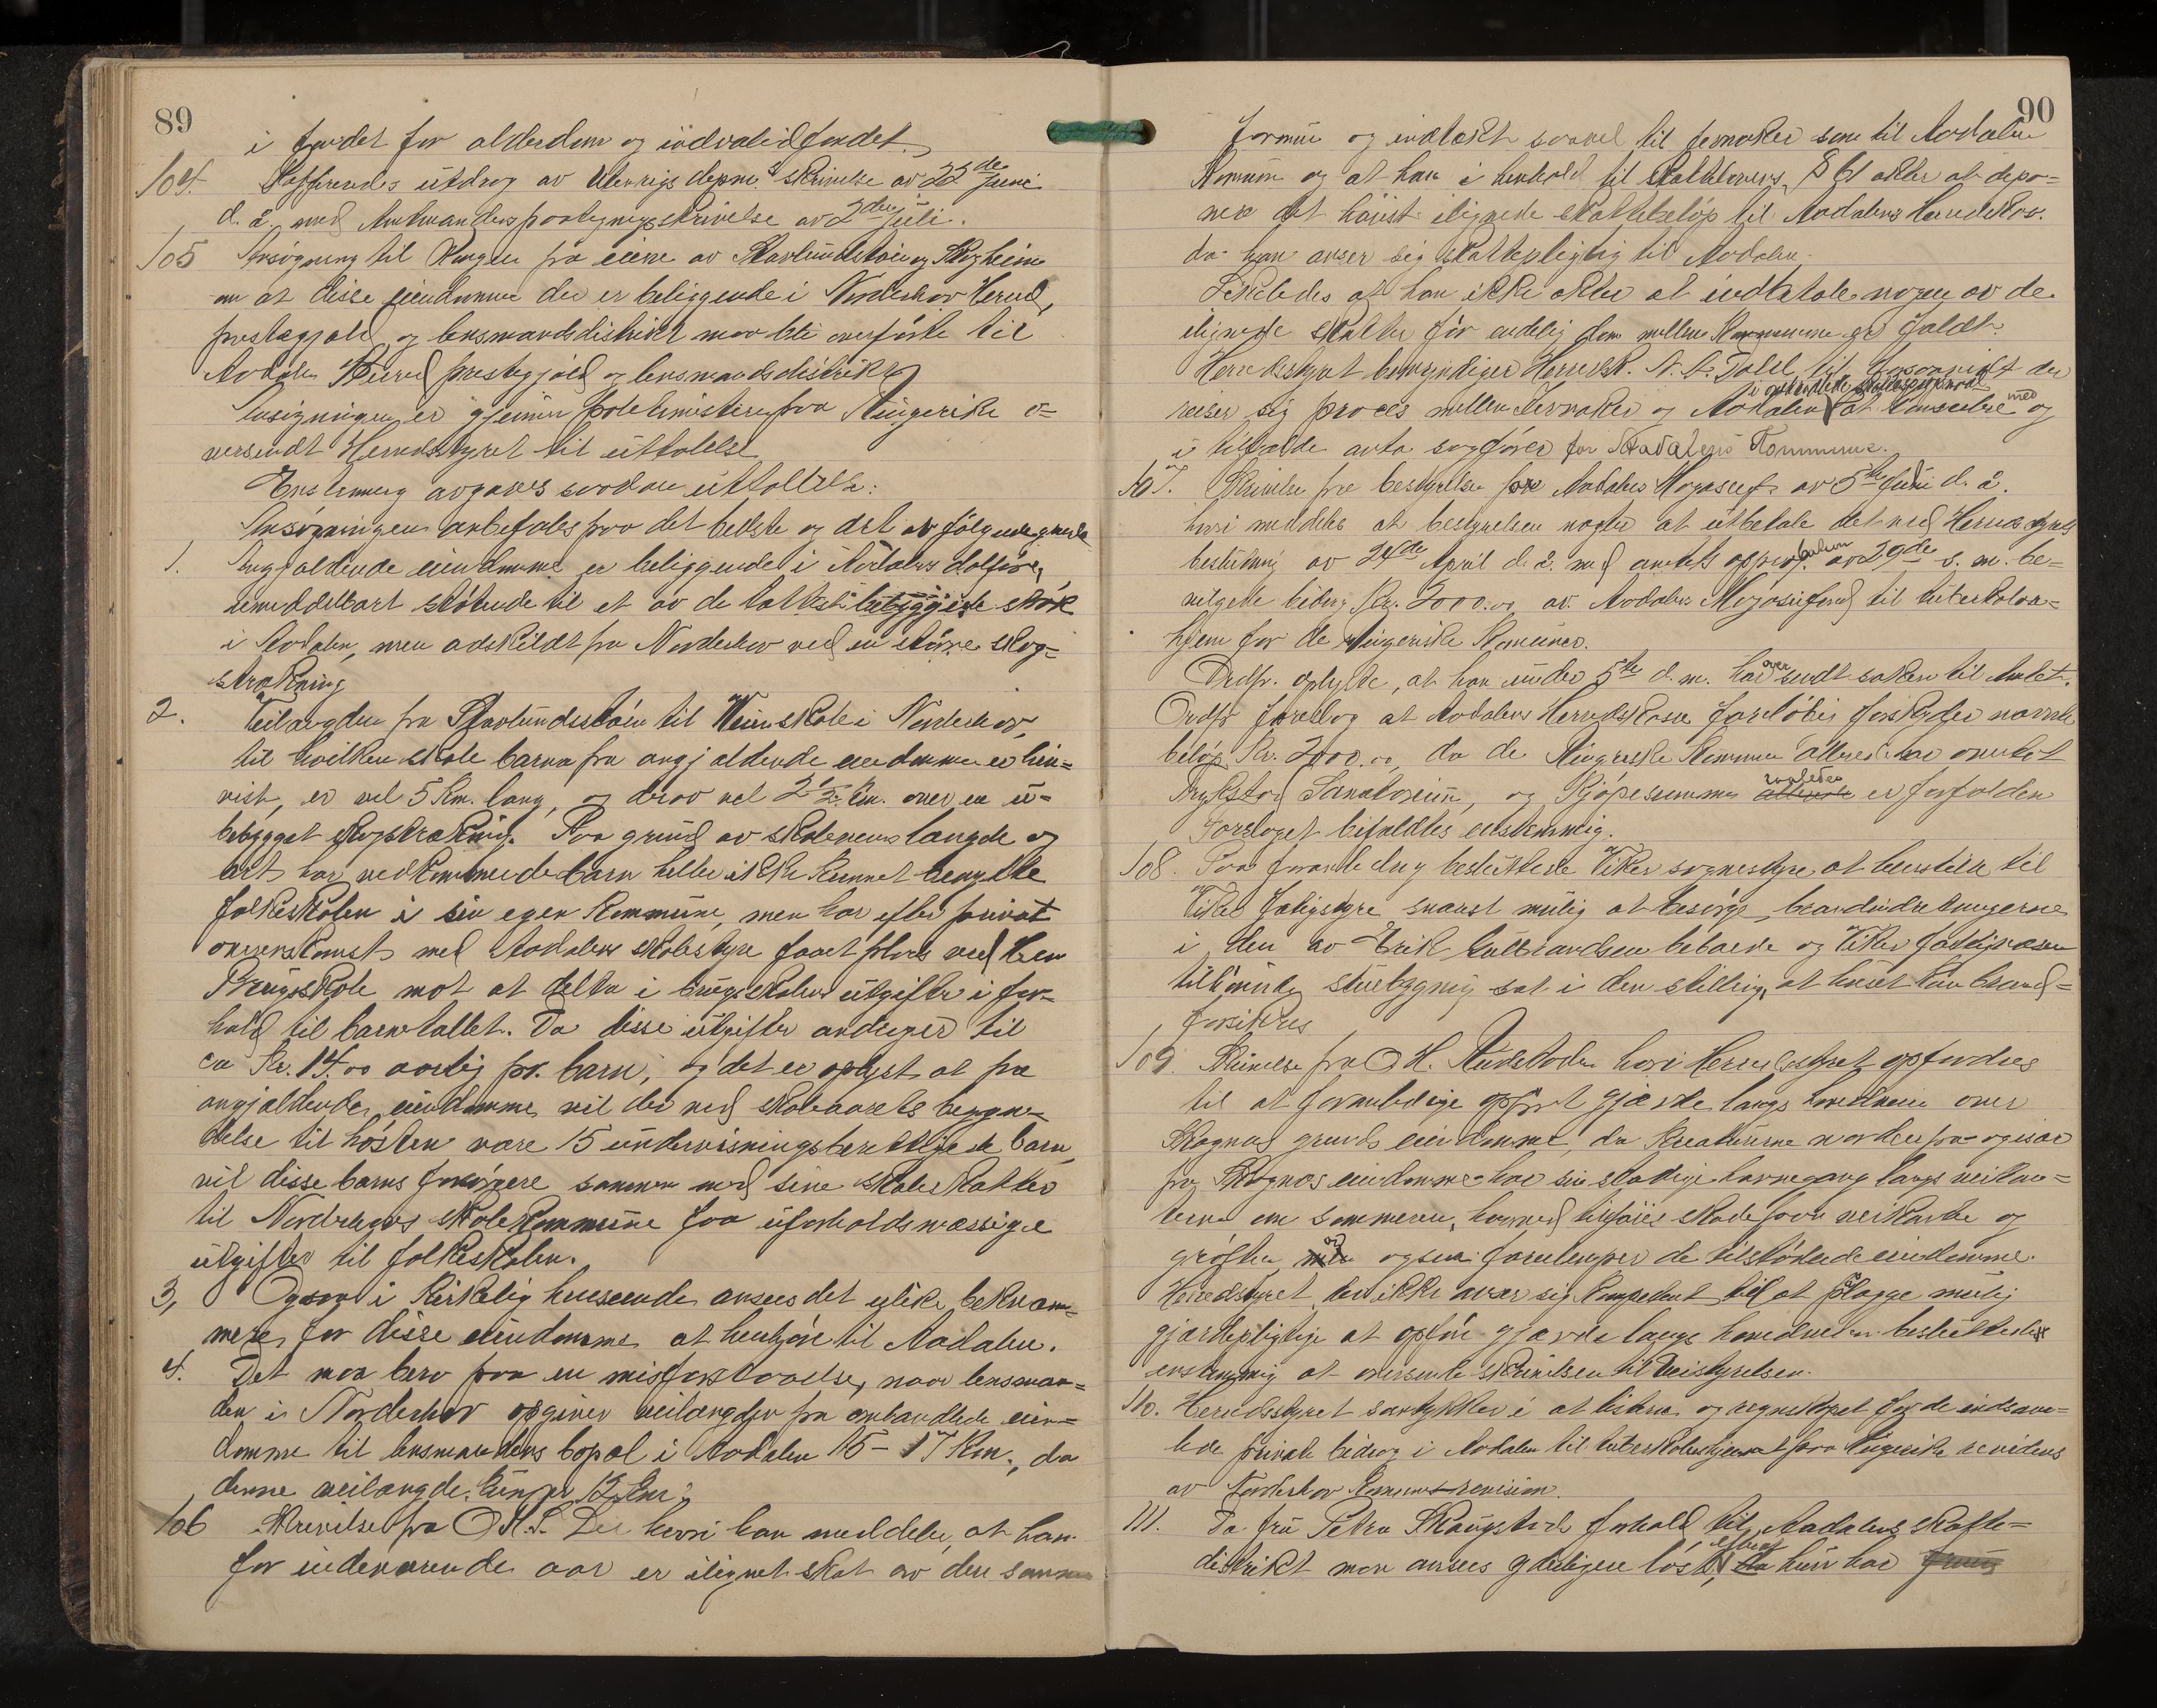 89
i fondet for alderdom og invalidfondet.
104. utdrag av Utenrigsdepm.s skrivelse av 22de Juni
d. a. med Amtmandens paategningsskrivelse av 2den Juli.
105 Ansøgning til Kongen fra eierne av Skarlundstøien og Skogheim
om at disse eiendomme der er beliggende i Norderhov Herred,
prestegjæld og lensmandsdistrikt maa bli overførte til
Aadalen Herred prestegjæld og lensmandsdistrikt
Ansøgningen er gjennem politimesteren paa Ringerike o-
versendt Herredsstyret til uttalelse
Enstemmig avgaves saadan uttalelse:
Ansøgningen anbefales paa det bedste og det av følgende grunde
1. Angjældende eiendomme er beliggende i Aadalens dalføre,
umiddelbart støtende til et av de tættest bebyggede strøk
i Aadalen, men adskildt fra Norderhov ved en større skog-
strækning
2. Veilængden fra Skarlundsstøien til Veien skole i Norderhov,
til hvilken skole barna fra angjældende eiendomme er hen-
vist, er vel 5 Km. lang, og derav vel 2 1/2 Km. over en u-
bebygget skogstrækning. Paa grund av skoleveiens længde og
art har vedkommende barn heller ikke kunnet benytte
folkeskolen i sin egen kommune, men har efter privat
overenskomst med Aadalens skolestyre faaet plads ved Hen
Brugsskole mot at delta i brugsskolens utgifter i for-
hold til barnetallet. Da disse utgifter andrager til
ca Kr. 14.00 aarlig pr. barn, og det er oplyst at fra
angjældende eiendomme vil der ved skoleaarets begyn-
delse til høsten være 15 undervisningsberettigede barn,
vil disse barns forsørgere sammen med sine skoleskatter
til Norderhovs skolekommune faa uforholdsmæssige
utgifter til folkeskolen.
3, Ogsaa i kirkelig henseende ansees det likes bekvem-
mere for disse eiendomme at henhøre til Aadalen.
4. Det maa bero paa en misforstaaelse, naar lensman-
den i Norderhov opgiver veilængden fra omhandlede eien-
domme til lensmandens bopæl i Aadalen 15 - 17 Km., da
denne veilængde kun er 12 Km.
106 Skrivelse fra O. K. L. Lie hvori han meddeler, at han
for indeværende aar er ilignet skat av den samme
90
formue og indtækt saavel til Jevnaker som til Aadalen
Kommune og at han i henhold til Skatteloven's § 61 akter at depo-
nere det høiest ilignede skattebeløp til Aadalens Herredskas.
da han anser sig skattepligtig til Aadalen.
Likeledes at han ikke akter at indbetale nogen av de
ilignede skatter før endelig dom mellem Kommunerne er faldt.
Herredsstyret bemyndiger Herredsk. N. A. Dahl til forsaavidt der
reiser sig proces mellem Jevnaker og Aadalen i omhandlede skattespørsmaal at konferere med og
i tilfælde anta sagfører for Aadalens Kommune.
107. Skrivelse fra bestyrelsen for Aadalens Magasinf. av 5te Juli d. a.
hvori meddeles at bestyrelsen nægter at utbetale det ved Herredsstyrets
beslutning av 24de April d. a. med amtets approbation av 29de s. m. be-
vilgede bidrag Kr. 2000.00 av Aadalens Magasinfond til tuberkulose-
hjem for de Ringerikske Kommuner.
Ordfr. oplyste, at han under 5te d. m. har oversendt saken til Amtet.
Ordfr foreslog at Aadalens Herredskasse foreløbig forskyder nævnte
beløp Kr. 2000.00 da de Ringerikske Kommuner allerede har overtat
Sanatorium, og Kjøpesummen saaledes er forfalden
Forslaget bifaldtes enstemmig.
108. Paa foranledning besluttede Vikers sognestyre at henstille til
Viker Fattigstyre snarest mulig at besørge brandindretningerne
i den av Erik Gulbrandsen beboede og Viker fattigvæsen
tilhørende stuebygning sat i den stilling at huset kan brand-
forsikres
109. Skrivelse fra O H. hvori Herredsstyret opfordres
til at foranledige opført gjærde langs hovedveien over
Skagnæs grunds eiendomme, da kreaturerne norden fra og især
fra Skagnæs eiendomme har sin stadige havnegang langs veikan-
terne om sommeren, hvorved tilføies skade paa veikanter og
grøfter og ogsaa forulemper de tilstøtende eiendomme.
Herredsstyret, der ikke anser sig kompetent til at paalægge mulig
gjærdepligtige at opføre gjærde langs hovedveien besluttedes
enstemmig at oversende skrivelsen til Veistyrelsen.
110. Herredsstyret samtykker i at listerne og regnskapet for de indsam-
lede private bidrag i Aadalen til tuberkulosehjemmet paa Ringerike revideres
av Norderhov Kommunerevision.
111. Da fru Petra Skaugstad's forhold til Aadalens skatte-
distrikt maa ansees yderligere løst, efterat hun har